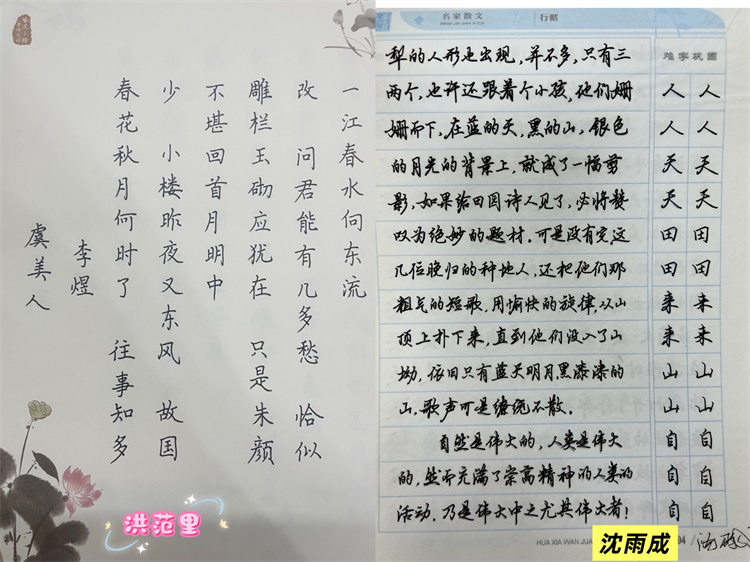 虞美人
李煜
春花秋月何时了 往事知多
少 小楼昨夜又东风 故国
不堪回首月明中
雕栏玉砌应犹在 只是朱颜
改 问君能有几多愁 恰似
一江春水向东流
洪范里
名家散文 行楷
MING JIA SAN WEN
犁的人形也出现,并不多,只有三
两个,也许还跟着个小孩,他们姗
姗而下,在蓝的天,黑的山,银色
的月光的背景上,就成了一幅剪
影,如果给田园诗人见了,必将赞
叹为绝妙的题材.可是没有完,这
几位晚归的种地人,还把他们那
粗气的短歌,用愉快的旋律,从山
顶上扑下来,直到他们没入了山
坳,依旧只有蓝天明月黑漆漆的
山,歌声可是缭绕不散.
自然是伟大的,人类是伟大
的,然而充满了崇高精神的人类的
活动,乃是伟大中之尤其伟大者!
难字巩固
人 人
人 人
天 天
天 天
田 田
田 田
来 来
来 来
山 山
山 山
自 自
自 自
自 自
HUA XIA WAN JUAN
04
沈雨成